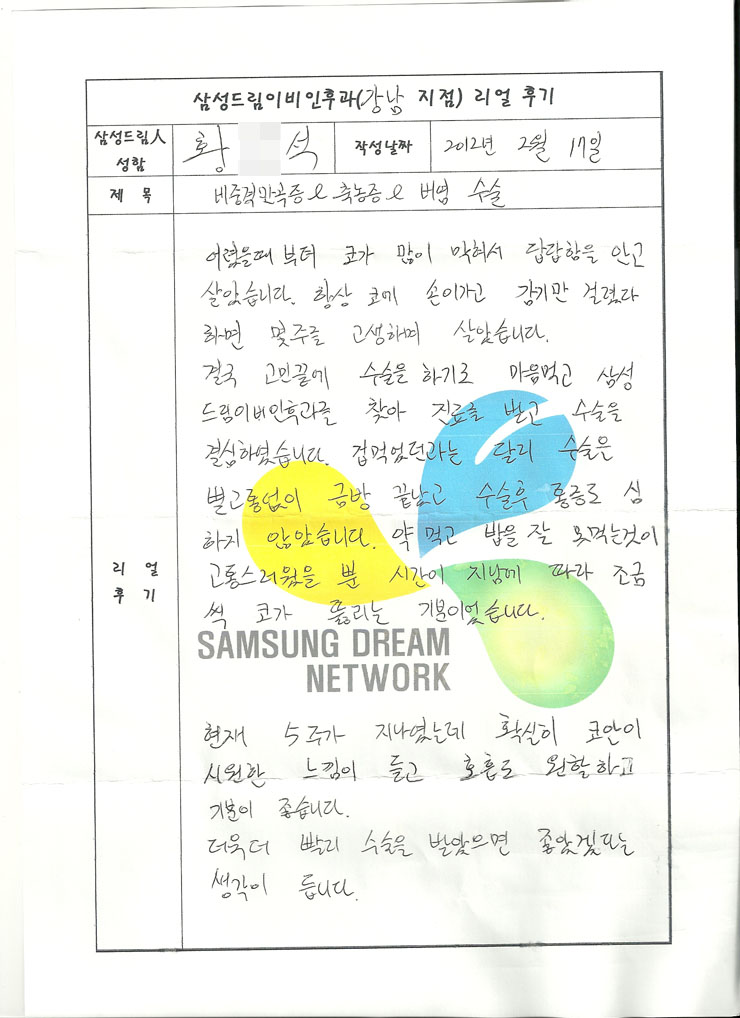 삼성드림이비인후과(강남 지점) 리얼 후기
삼성드림人 성함 황 석 작성날짜 2012년 2월 17일
제 목 비중격만곡증& 축농증 & 비염 수술
어렸을때 부터 코가 많이 막혀서 답답함을 안고
살았습니다. 항상 코에 손이가고 감기만 걸렸다
하면 몇주를 고생하며 살았습니다.
결국 고민끝에 수술을 하기로 마음먹고 삼성
드림이비인후과를 찾아 진료를 받고 수술을
결심하였습니다. 겁먹었던과는 달리 수술은
별고통없이 금방 끝났고 수술후 통증도 심
하지 않았습니다. 약 먹고 밥을 잘 못먹는것이
고통스러웠을 뿐 시간이 지남에 따라 조금
씩 코가 뚫리는 기분이었습니다.
SAMSUNG DREAM
NETWORK
리 얼
후 기
현재 5주가 지나였는데 확실히 코안이
시원한 느낌이 들고 호흡도 원할하고
기분이 좋습니다.
더욱더 빨리 수술을 받았으면 좋았겠다는
생각이 듭니다.